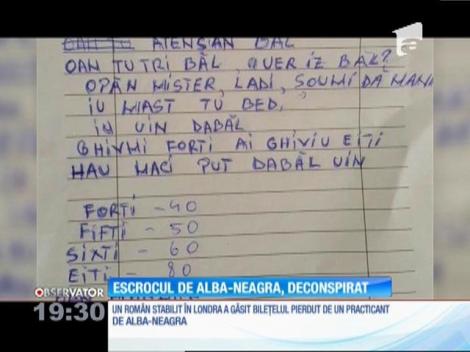 ATENȘÀN BÀL
OAN TU TRI BÀL, QUER IZ BAL?
OPÀN MISTER, LADI, ȘOUMI DA MANI
IU MIAST TU BED,
IU UIN DABÀL
GHIVMI FORTI AI GHIVIU EITI
HAU MACI PUT DABÀL UIN
FORTI - 40
FIFTI - 50
SIXTI - 60
EITI - 80
OBSERVATOR
19:30
ESCROCUL DE ALBA-NEAGRA, DECONSPIRAT
UN ROMÂN STABILIT ÎN LONDRA A GĂSIT BILEȚELUL PIERDUT DE UN PRACTICANT
DE ALBA-NEAGRA